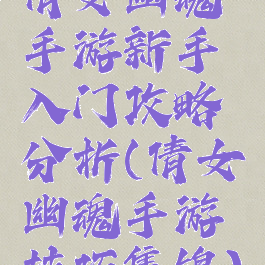 倩女幽魂
手游新手
入门攻略
分析(倩女
幽魂手游
技巧集锦)